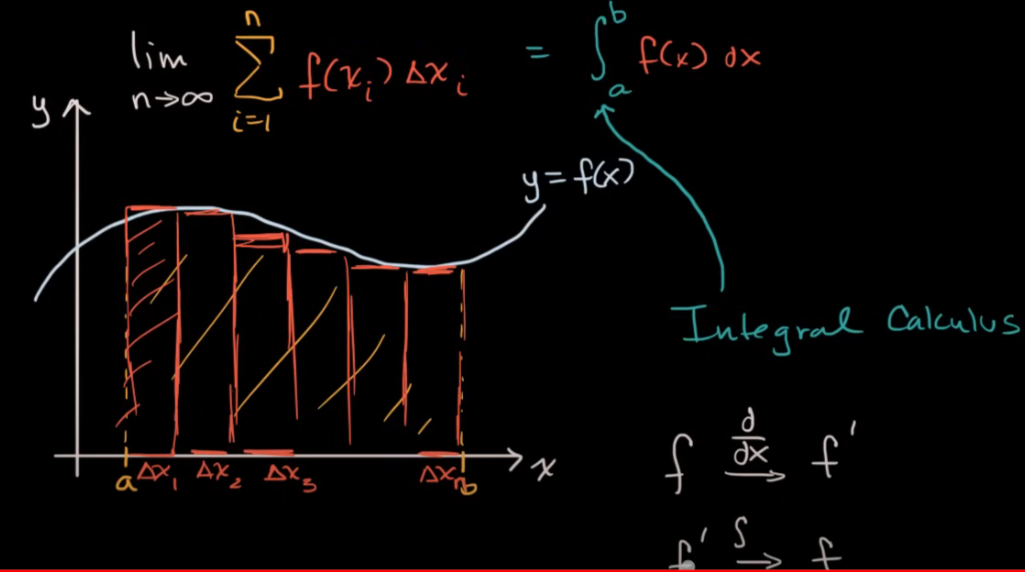 lim n→∞ n Σ i=1 f(xᵢ) Δxᵢ = ∫ₐᵇ f(x) dx
y
y = f(x)
Integral Calculus
a Δx₁ Δx₂ Δx₃ Δxₙ b x
f d/dx → f'
f' ∫ → f